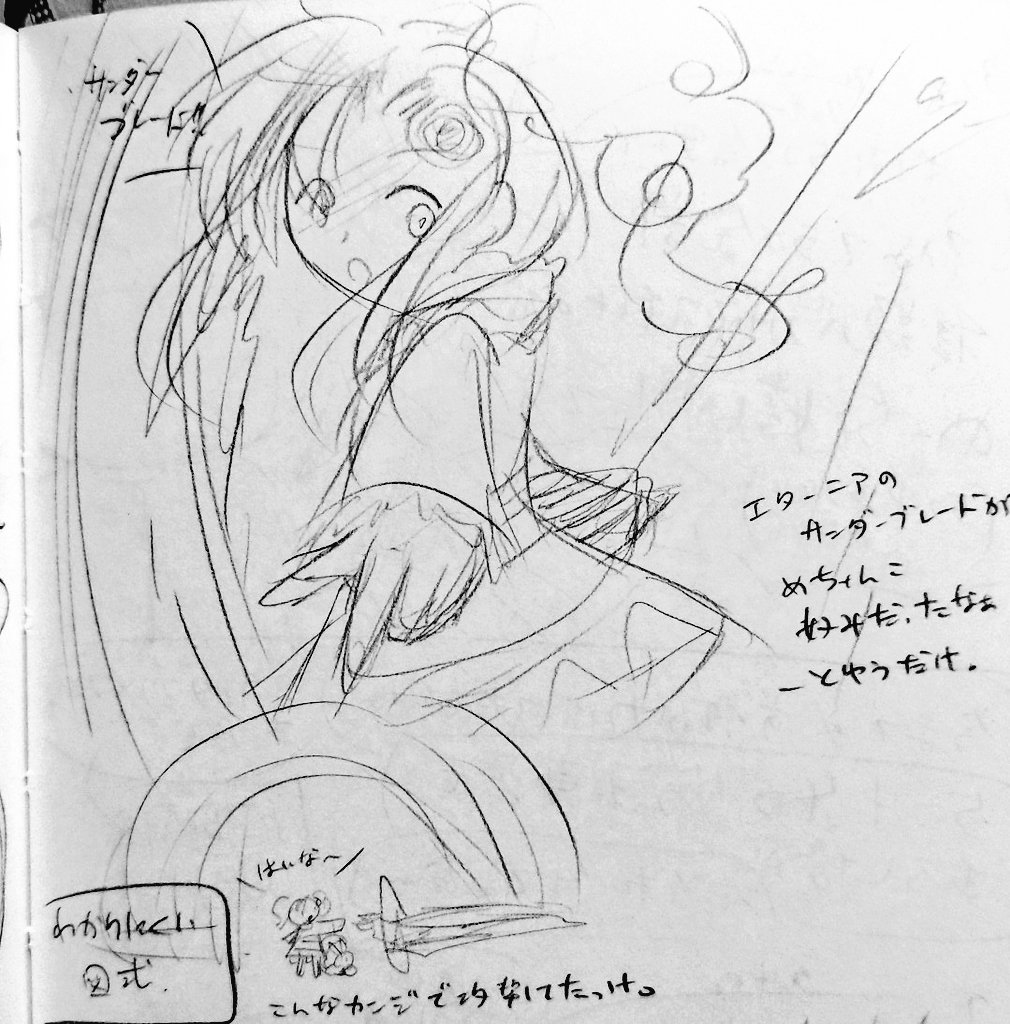 サンダー
ブレード!!
エターニアの
サンダーブレードが
めちゃんこ
好みだったなぁ
ーとゆうだけ。
はいな〜
わかりにくい
図式.
こんなカンジで攻撃してたっけ。